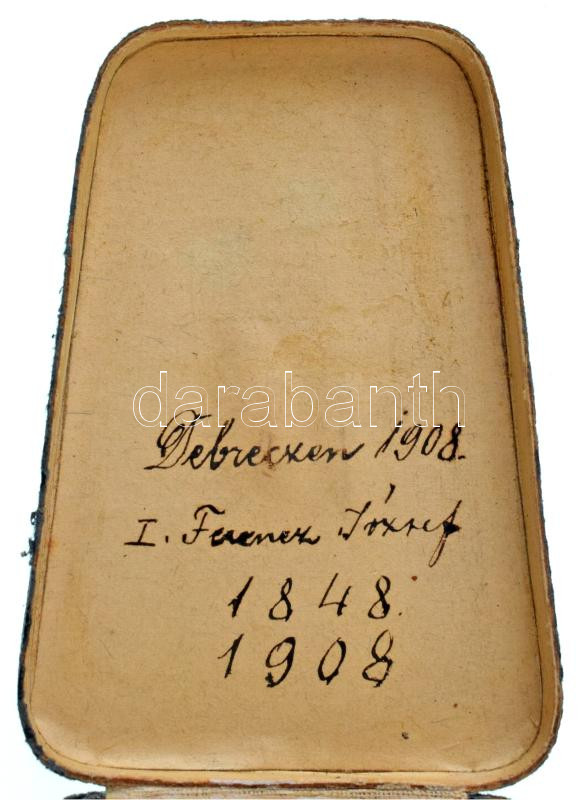 darabanth
Debreczen 1908.
I. Ferencz József
1848.
1908